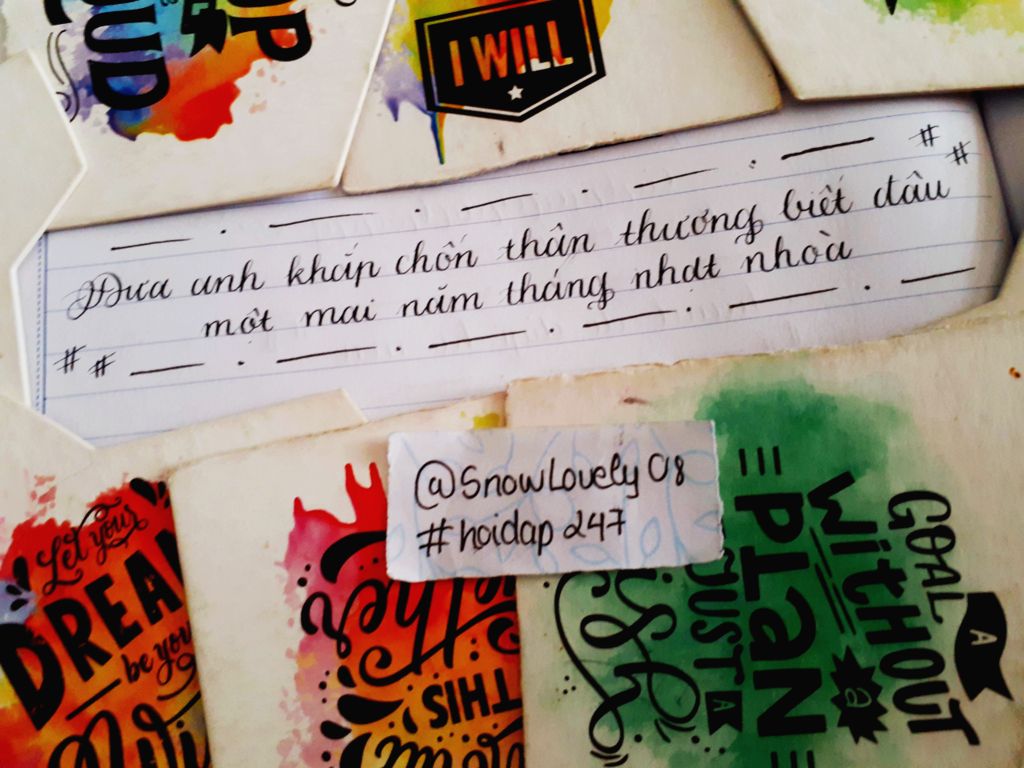 OUD
UP
I WILL
Đưa anh khắp chốn thân thương biết đâu
một mai năm tháng nhạt nhoà
@SnowLovely08
#hoidap247
Let your
DREAM
be your
THIS
A
GOAL
WITHOUT
a
PLAN
JUST A
wish